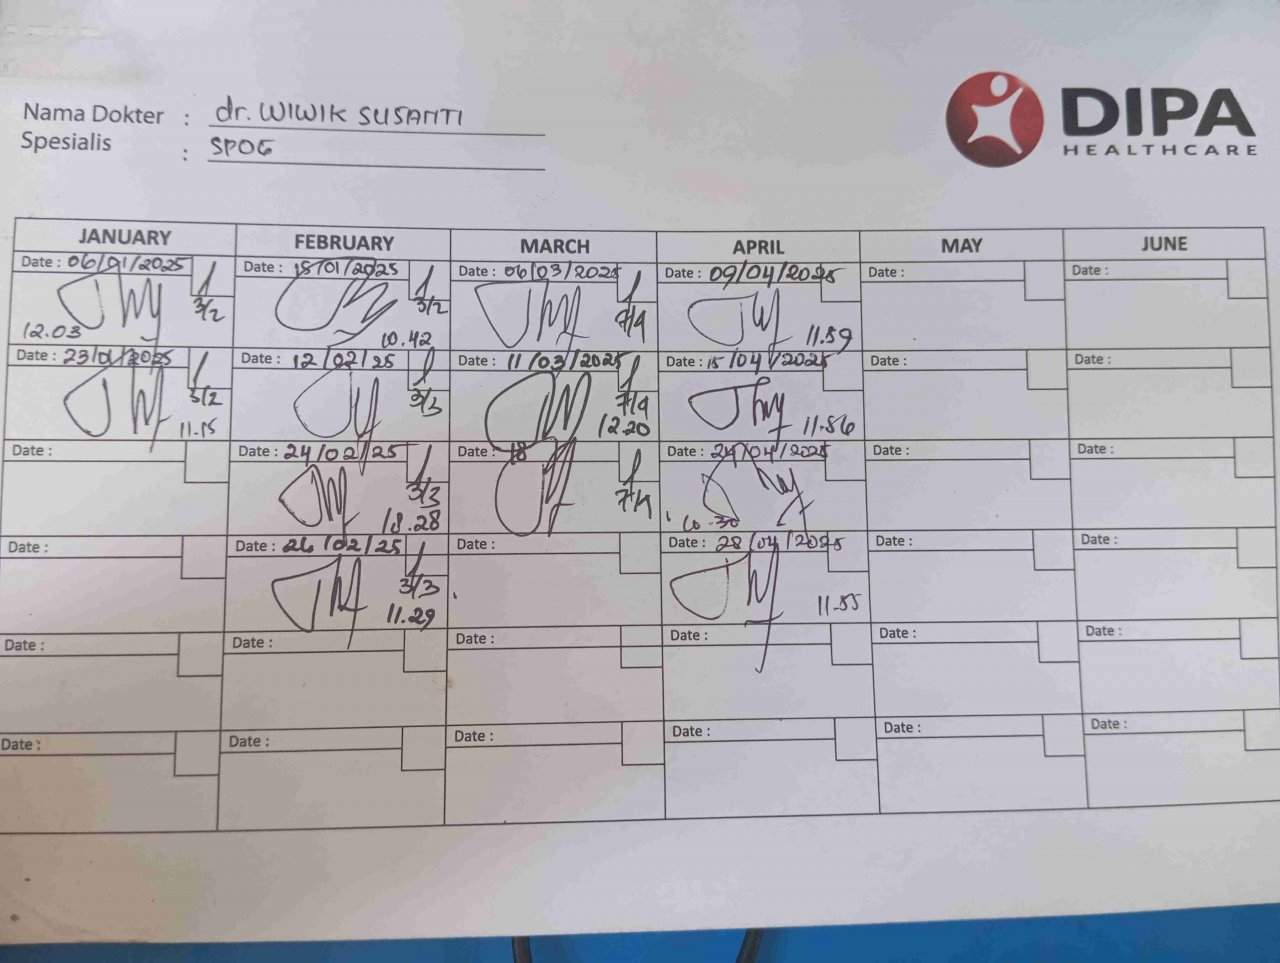 Nama Dokter : dr. WIWIK SUSANTI
Spesialis : SPOG
DIPA
HEALTHCARE
JANUARY FEBRUARY MARCH APRIL MAY JUNE
Date : 06/01/2025 Date : 15/01/2025 Date : 06/03/2025 Date : 09/04/2025 Date : Date :
3/2 3/2 7/4
12.03 10.42 11.59
Date : 23/01/2025 Date : 12/02/25 Date : 11/03/2025 Date : 15/04/2025 Date : Date :
3/2 3/3 7/4
11.15 12.20 11.56
Date : Date : 24/02/25 Date : 18 Date : 24/04/2025 Date : Date :
3/3 7/4
18.28 10.30
Date : Date : 26/02/25 Date : Date : 28/04/2025 Date : Date :
3/3
11.29 11.55
Date : Date : Date : Date : Date : Date :
Date : Date : Date : Date : Date : Date :